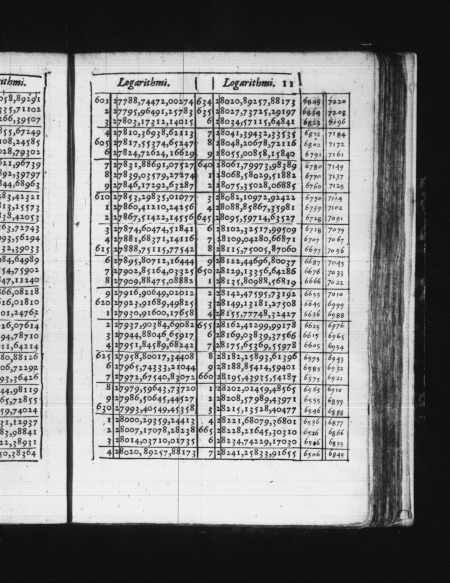 ithmi.
058,89291
335,71102
266,39507
855,67249
108,24585
028,79301
621,96739
892,39797
844,68963
483,42321
813,15573
838,42053
563,72743
993,56294
132,39033
984,64989
554,75902
847,11240
866,08218
616,01810
101,24762
326,07614
294,78710
011,64214
480,88126
706,72292
693,36426
444,98119
965,72855
259,74024
331,12937
183,98841
822,38931
250,38364
Logarithmi. Logarithmi. 11
601 27788,74472,00274 634 28020,89257,88173 6849 7220
2 27795,96491,25783 635 28027,73725,29197 6834 7208
3 27803,17312,14015 6 28034,57115,64841 6823 7196
4 27810,36938,62113 7 28041,39432,33535 6812 7184
605 27817,55374,65247 8 28048,20678,72116 6802 7172
6 27824,72624,16629 9 28055,00858,15840 6791 7161
7 27831,88691,07537 640 28061,79973,98389 6780 7149
8 27839,03579,27274 1 28068,58029,51882 6770 7137
9 27846,17292,63287 2 28075,35028,06885 6760 7125
610 27853,29835,01077 3 28081,10972,92422 6750 7114
1 27860,41210,24256 4 28088,85867,35981 6739 7102
2 27867,51422,14556 645 28095,59714,63527 6728 7091
3 27874,60474,51841 6 28102,32517,99509 6718 7079
4 27881,68371,14116 7 28109,04280,66871 6707 7067
615 27888,75115,77542 8 28115,75005,87060 6697 7056
6 27895,80712,16444 9 28122,44696,80037 6687 7045
7 27902,85164,03325 650 28129,13356,64286 6676 7033
8 27909,88475,08882 1 28135,80988,56819 6666 7022
9 27916,90649,02012 2 28142,47595,73192 6655 7010
620 27923,91689,49825 3 28149,13181,27508 6645 6999
1 27930,91600,17658 4 28155,77748,32427 6636 6988
2 27937,90384,69082 655 28162,41299,99178 6625 6976
3 27944,88046,65917 6 28169,03839,37566 6615 6965
4 27951,84589,68242 7 28175,65369,55978 6605 6954
625 27958,80017,34408 8 28182,25893,61396 6595 6943
6 27965,74333,21044 9 28188,85414,59401 6585 6932
7 27972,67540,83072 660 28195,43935,54187 6575 6921
8 27979,59643,73720 1 28202,01459,48565 6565 6910
9 27986,50645,44527 2 28208,57989,43971 6555 6899
630 27993,40549,45358 3 28215,13528,40477 6546 6888
1 28000,29359,24413 4 28221,68079,36801 6536 6877
2 28007,17078,28238 665 28228,21645,30310 6526 6866
3 28014,03710,01735 6 28234,74229,17030 6516 6855
4 28020,89257,88173 7 28241,25833,91655 6506 6845